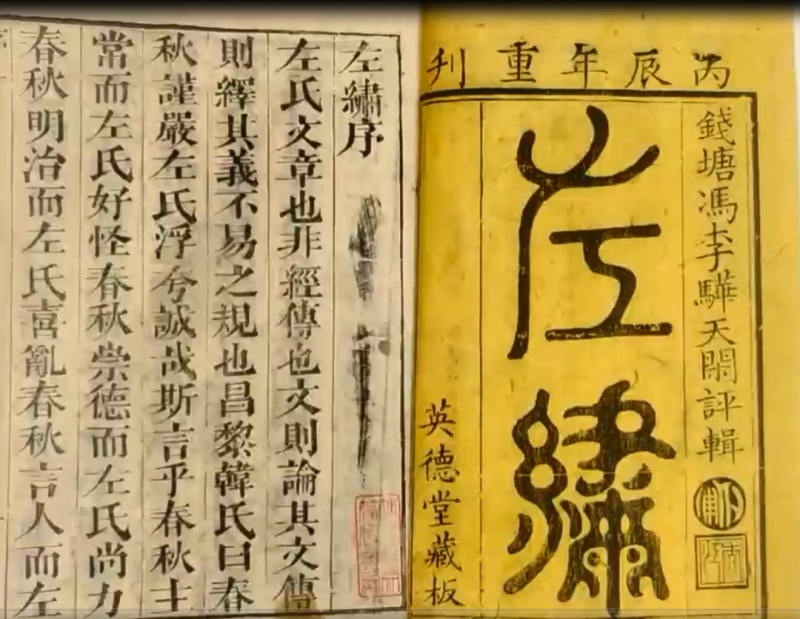 丙辰年重刊
錢塘馮李驊天閑評輯
左繡
英德堂藏板
左繡序
左氏文章也非經傳也文則論其文傳
則繹其義不易之規也昌黎韓氏曰春
秋謹嚴左氏浮夸誠哉斯言乎春秋主
常而左氏好怪春秋崇德而左氏尚力
春秋明治而左氏喜亂春秋言人而左